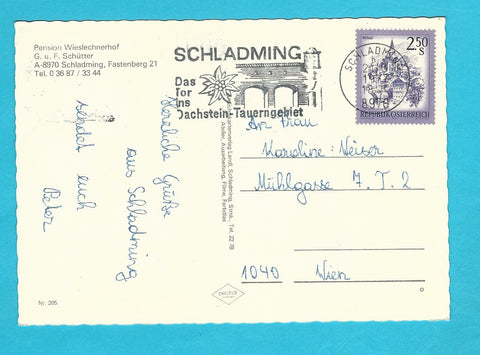 Pension Wieslechnerhof
G. u. F. Schütter
A-8970 Schladming, Fastenberg 21
Tel. 0 36 87 / 33 44
SCHLADMING
Das
Tor
ins
Dachstein-Tauerngebiet
SCHLADMING
8970
2.50
S
REPUBLIK ÖSTERREICH
Herzliche Grüße
aus Schladming
sendet euch
Peter
An Frau
Karoline Weiser
Mühlgasse 7. T. 2
1040 Wien
Nr. 205